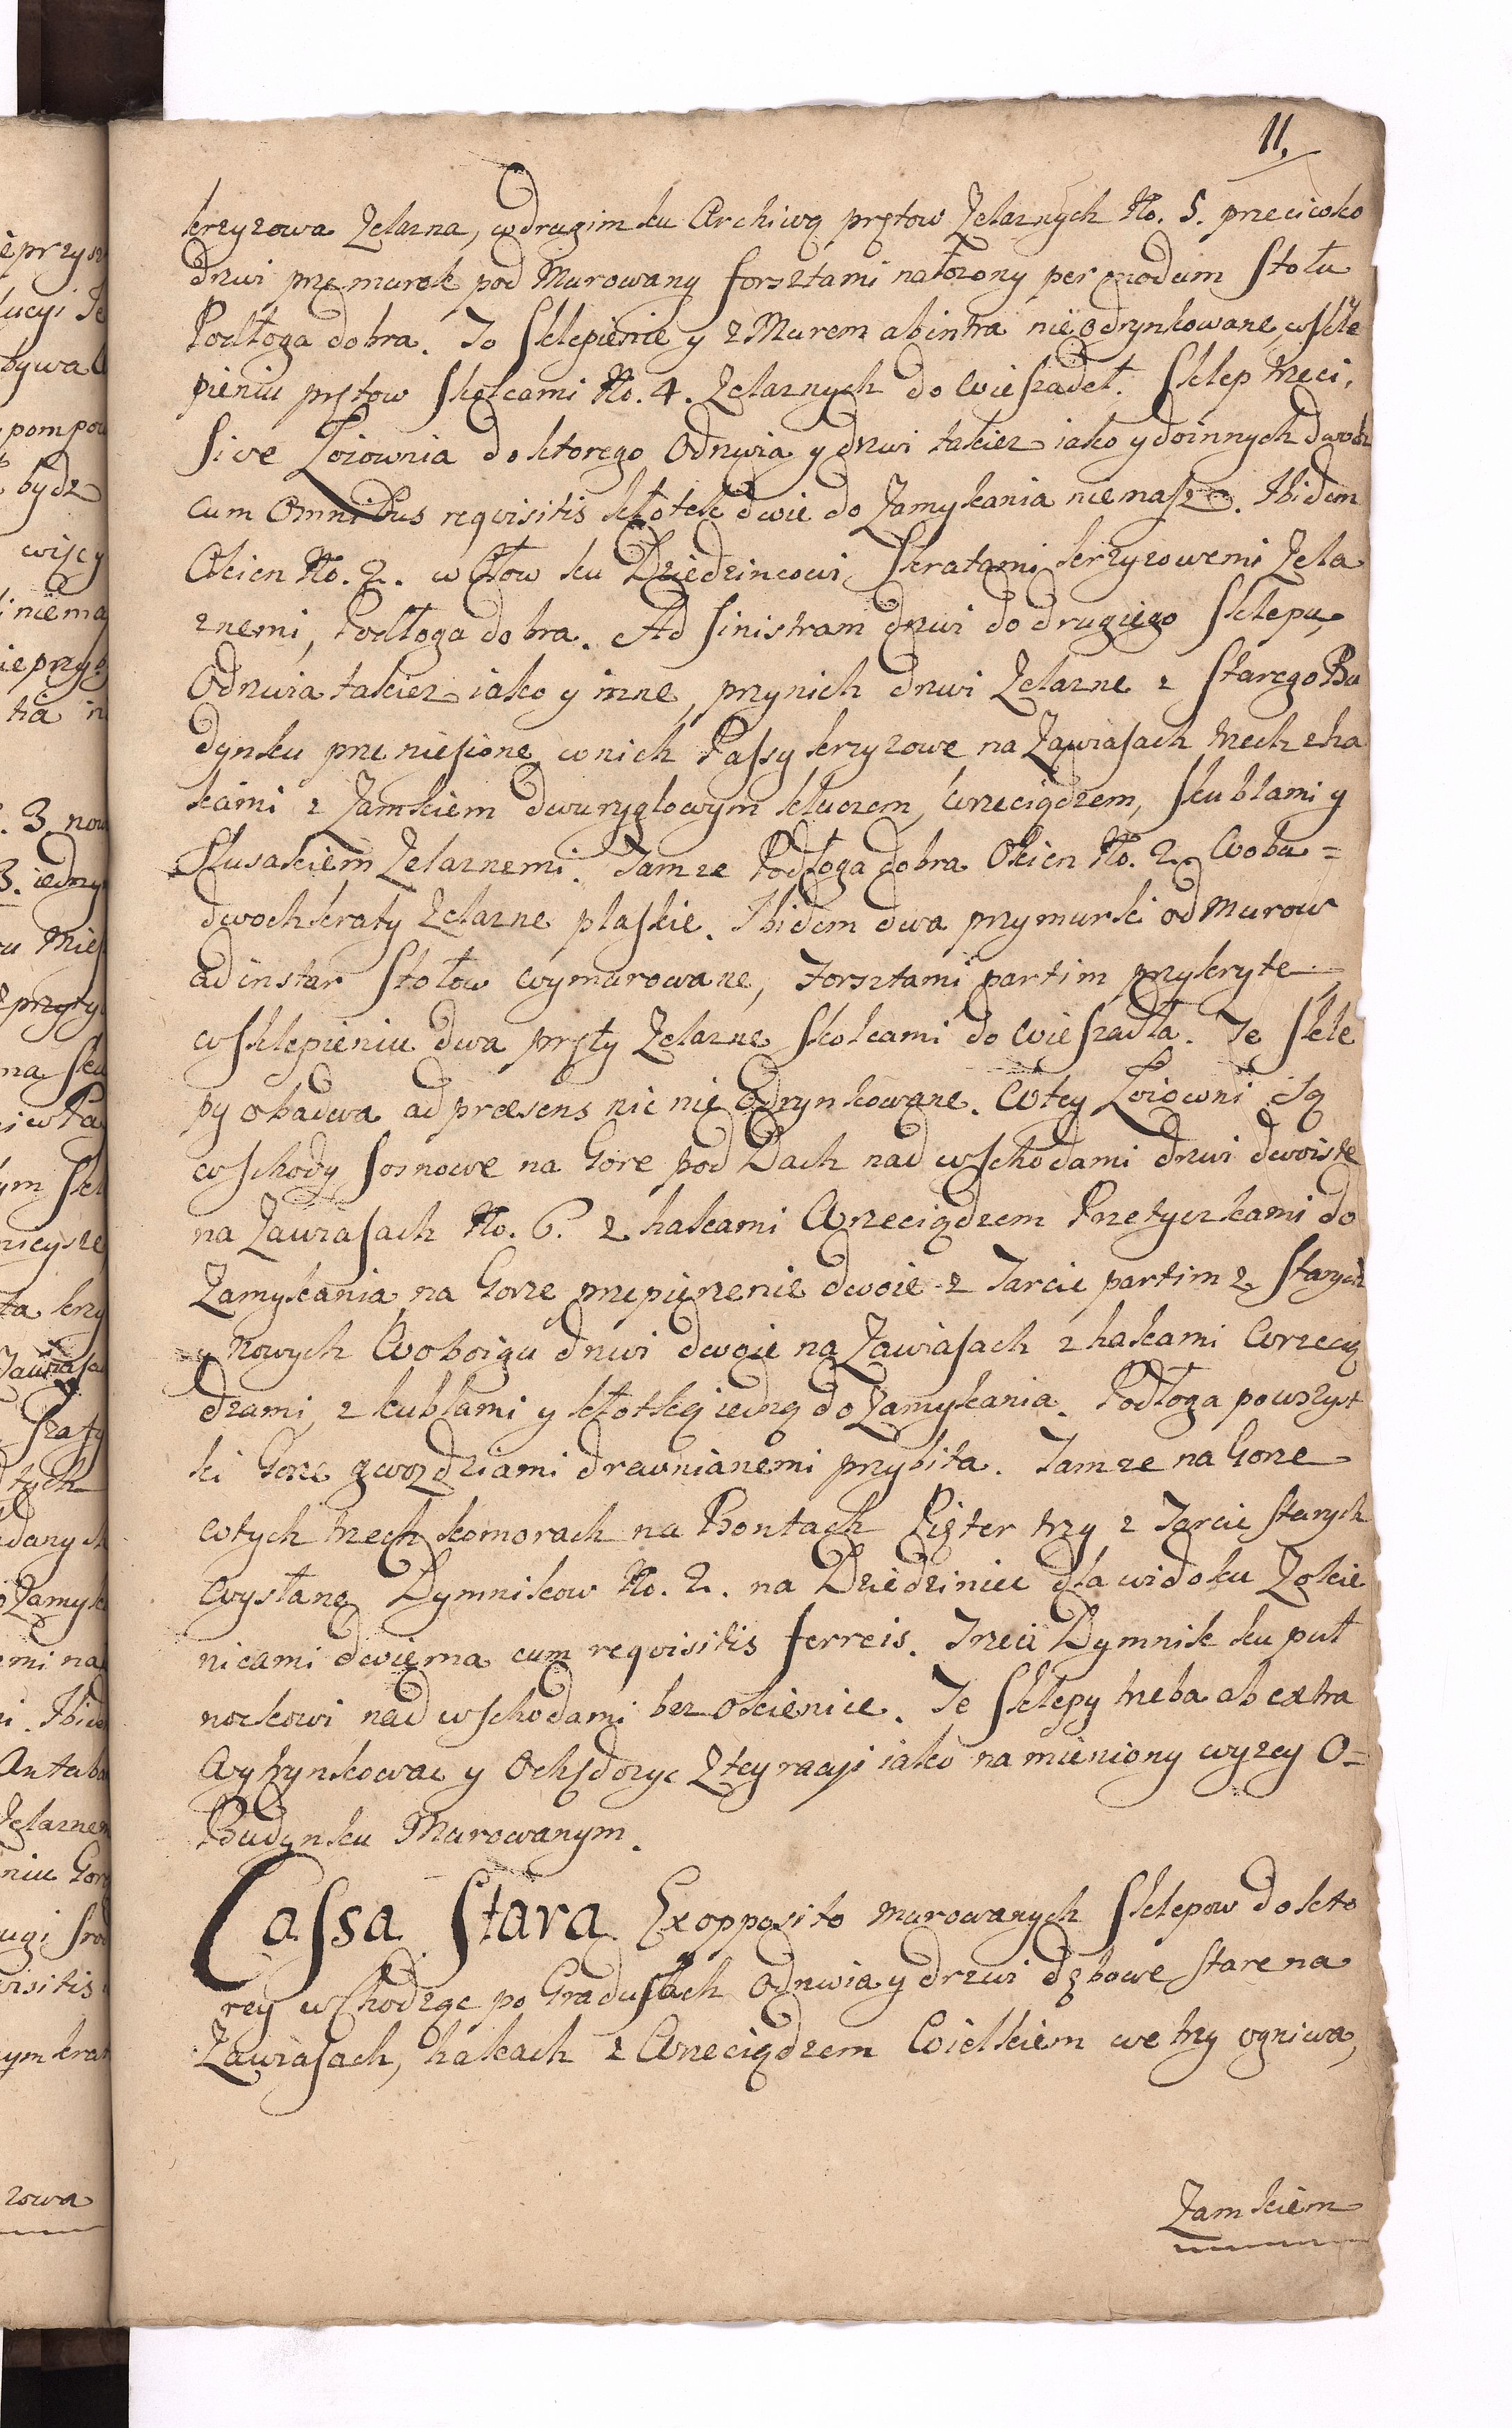 11.
krzyzowa Zelazna, w drugim ku Archiwą prętow Zelaznych No. 5. przeciwko
drzwi przymurek pod Murowany forsztami nałozony per modum Stołu
Podłoga dobra. To Sklepienie y z Murem ab intra nie odrynkowane, w skle
pieniu prętow Skolcami No. 4. Zelaznych do wieszadeł. Sklep trzeci,
Sive Łoiownia do ktorego Odrzwia y drzwi takiez iako y do innych dwoch
cum Omnibus reqvisitis kłotek dwie do Zamykania niemasz. Ibidem
Okien No. 2. w Ołow ku Dziedzincowi, Skratami krzyzowemi Zela
znemi, Podłoga dobra. Ad Sinistram drzwi do drugiego Sklepu,
Odrzwia takiez iako y inne, przy nich drzwi Zelazne z Starego Bu
dynku przeniesione, w nich Passy krzyzowe na Zawiasach trzech z ha
kami z Zamkiem dwuryglowym kluczem, Wrzeciądzem, Skublami y
Skusakiem Zelaznemi. Tamze Podłoga dobra Okien No. 2. W obu=
dwoch kraty Zelazne płaskie. Ibidem dwa przymurki od Murow
ad instar Stołow wymurowane, Forsztami partim przykryte,
w Sklepieniu dwa pręty Zelazne Skolcami do wieszadła. Te Skle
py obadwa ad præsens nic nie Odrynkowane. W tey Łoiowni Są
w schody Sosnowe na Gore pod Dach nad w schodami drzwi dwoiste
na Zawiasach No. 6. z hakami Wrzeciądzem Przetyczkami do
Zamykania, na Gorze przepierzenie dwoie z Tarcic partim z Starych
y Nowych W oboigu drzwi dwoie na Zawiasach z hakami Wrzecią
dzami, z kublami y kłotką iedną do Zamykania. Podłoga powszyst
ki Gorze gwozdziami drewnianemi przybita. Tamze na Gorze
w tych trzech komorach na Bontach Pięter trzy z Tarcic starych
Wysłane Dymnikow No. 2. na Dziedziniec dla widoku Zokie
nicami dwiema cum reqvisitis ferreis. Trzeci Dymnik ku puł
nockowi nad w schodami bez okienice. Te Sklepy treba ab extra
Wytynkowac y Ochędozyc Z tey racyi iako namieniony wyzey O=
Budynku Murowanym.
Cassa Stara Exopposito murowanych Sklepow do kto
rey wchodząc po Gradusach Odrzwia y drzwi dębowe stare na
Zawiasach, hakach z Wrzeciądzem Wielkiem we trzy ogniwa,
Zamkiem